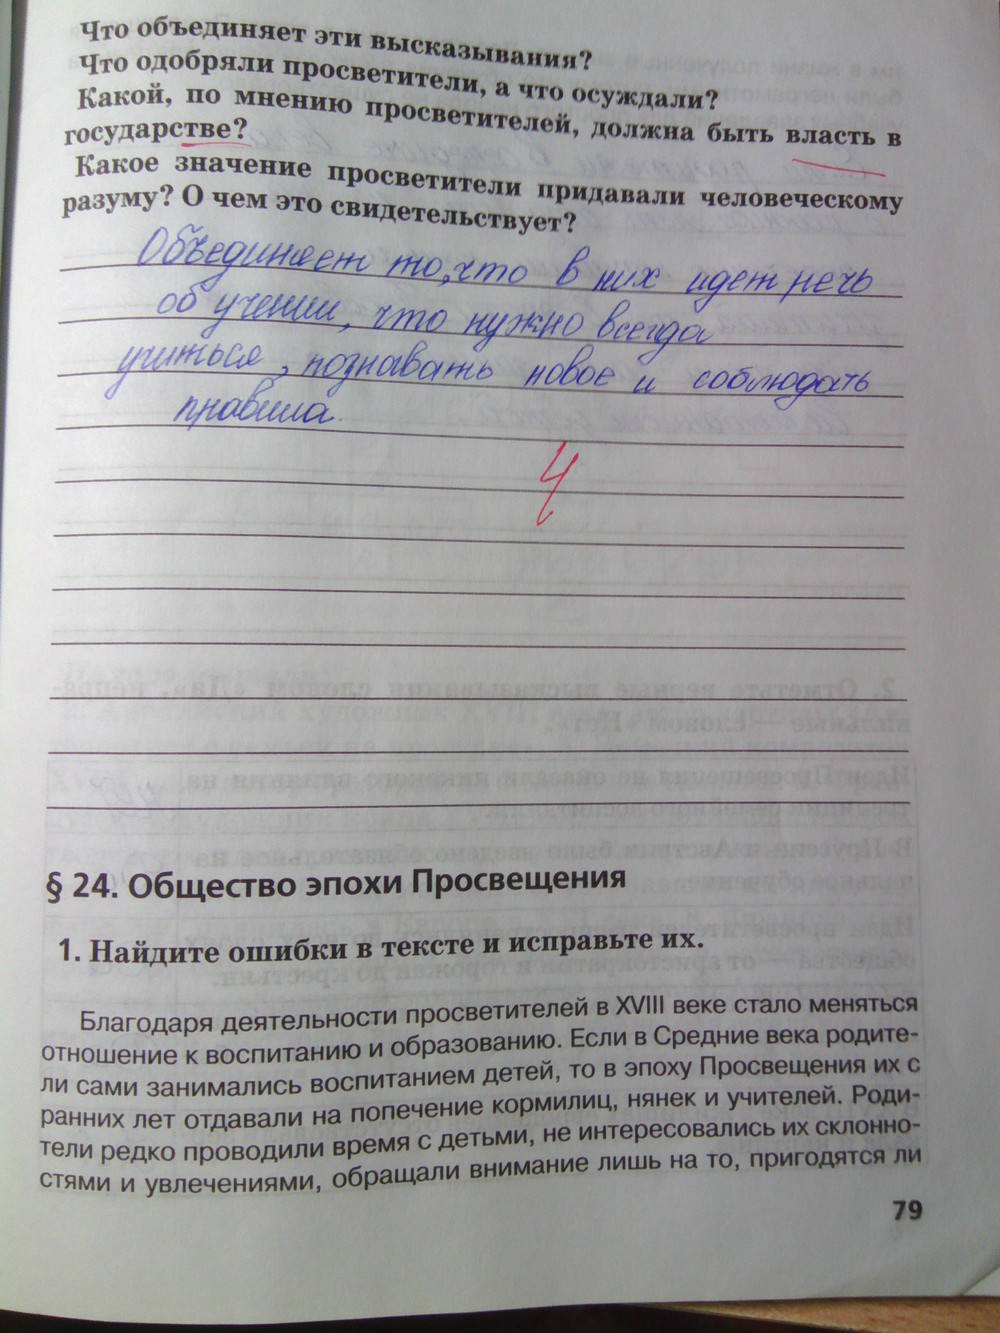 Что объединяет эти высказывания?
Что одобряли просветители, а что осуждали?
Какой, по мнению просветителей, должна быть власть в
государстве?
Какое значение просветители придавали человеческому
разуму? О чем это свидетельствует?
Объединяет то, что в них идет речь
об учении, что нужно всегда
учиться, познавать новое и соблюдать
правила.
4
§ 24. Общество эпохи Просвещения
1. Найдите ошибки в тексте и исправьте их.
Благодаря деятельности просветителей в XVIII веке стало меняться
отношение к воспитанию и образованию. Если в Средние века родите-
ли сами занимались воспитанием детей, то в эпоху Просвещения их с
ранних лет отдавали на попечение кормилиц, нянек и учителей. Роди-
тели редко проводили время с детьми, не интересовались их склонно-
стями и увлечениями, обращали внимание лишь на то, пригодятся ли
79